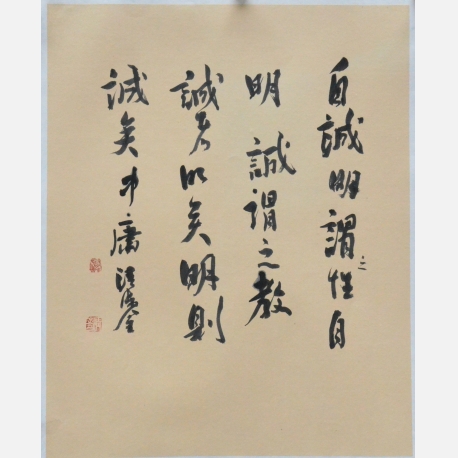 自誠明謂之性自
明誠謂之教
誠者明矣明則
誠矣中庸